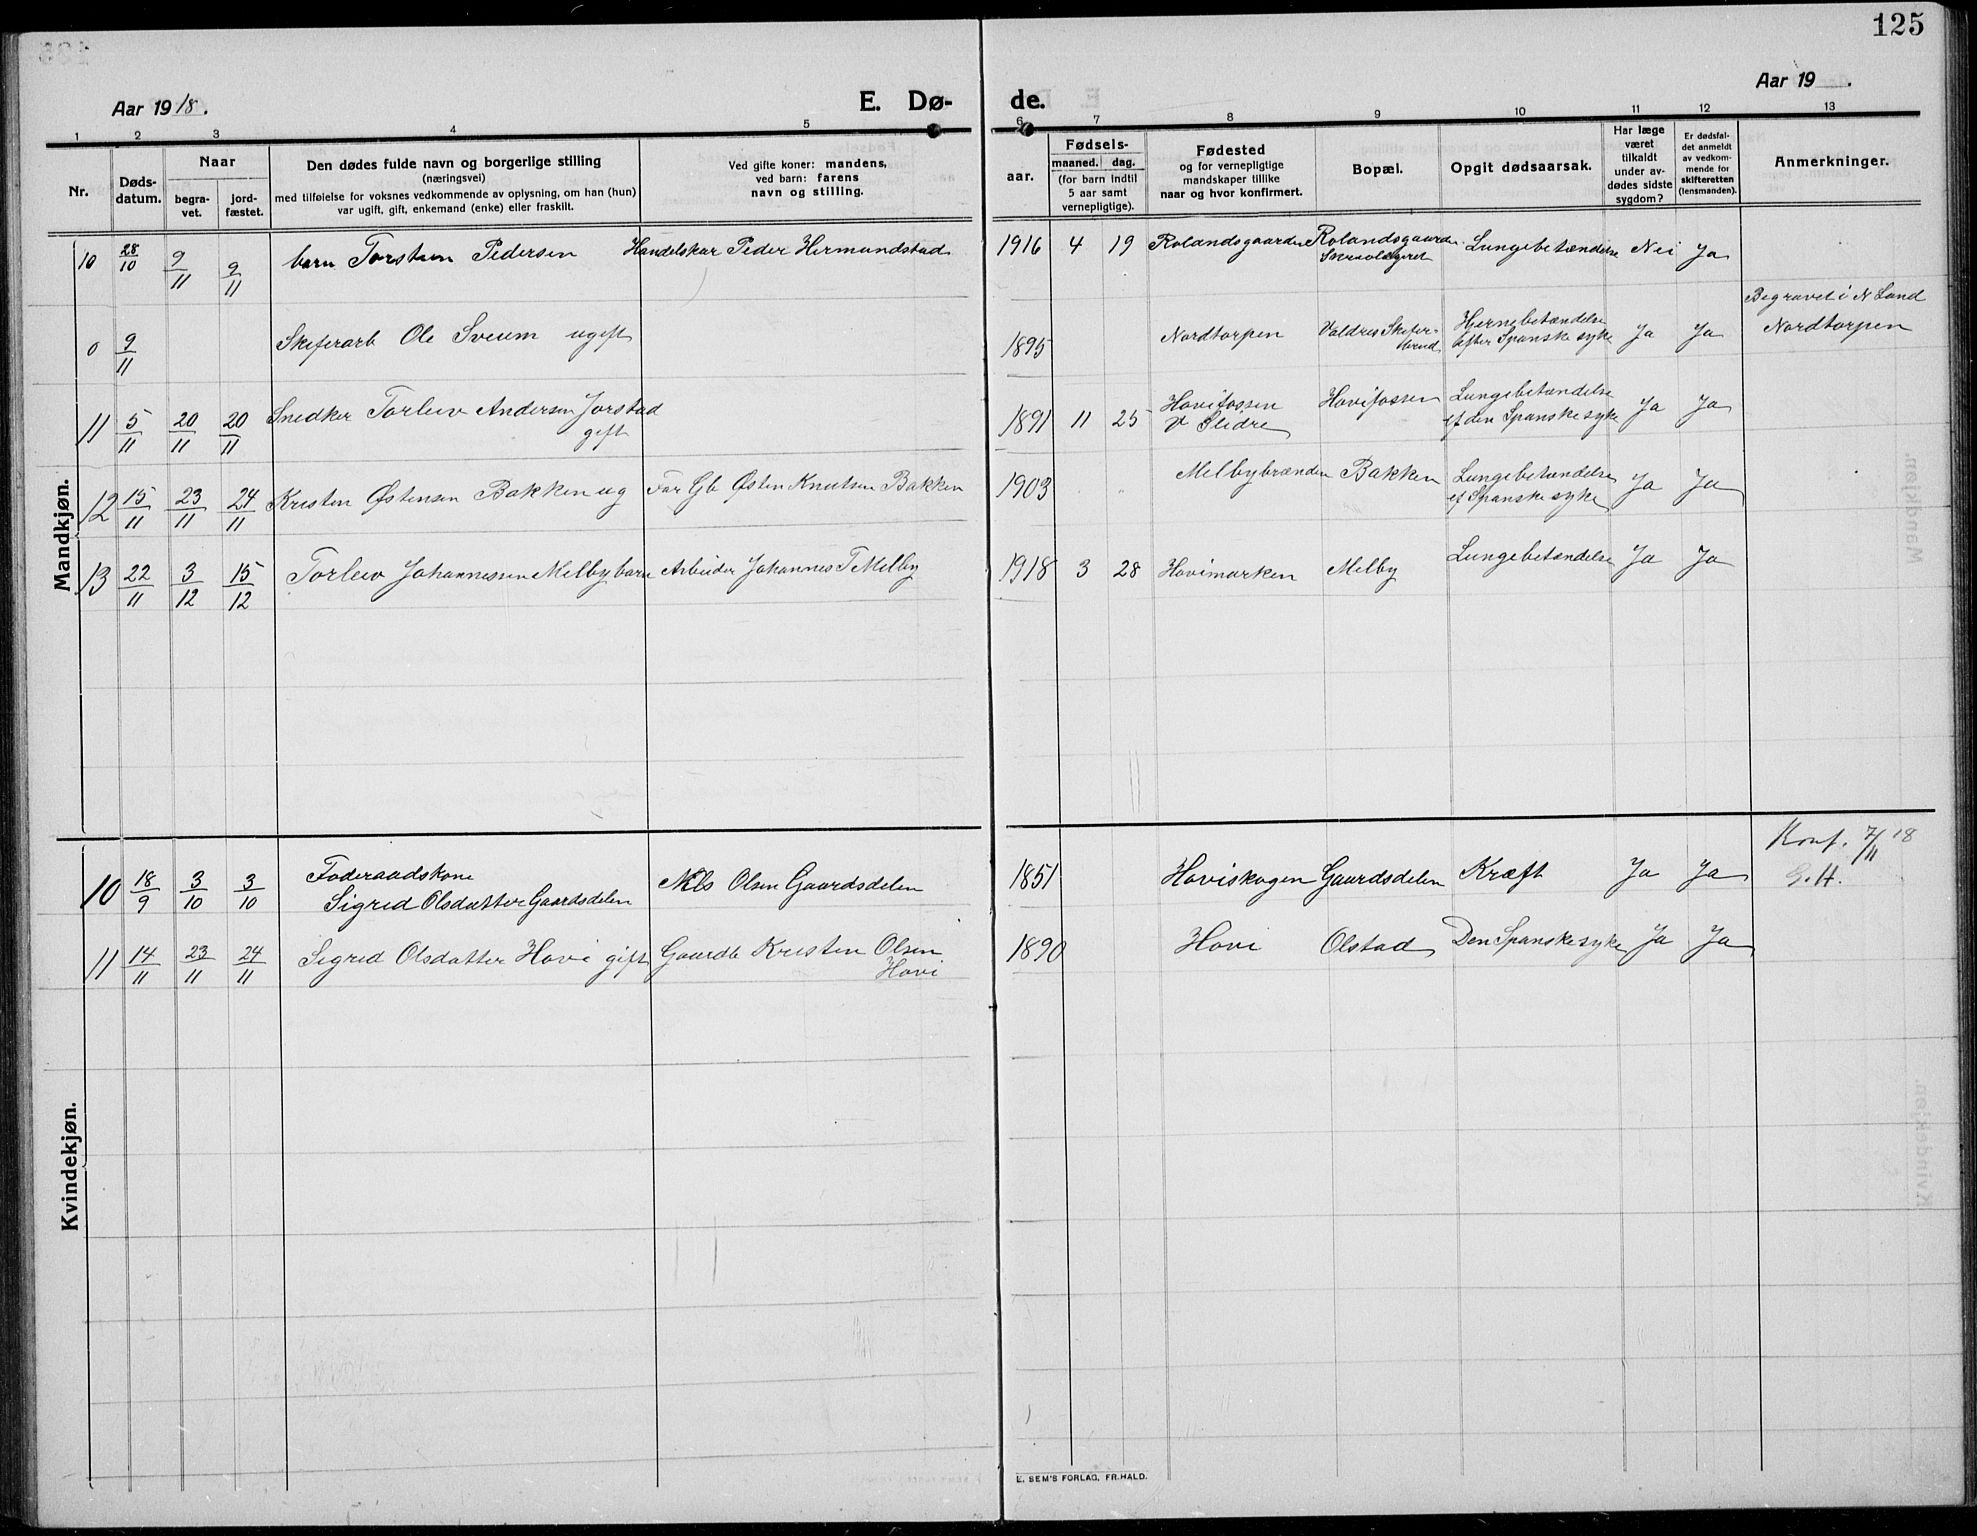 125
Aar 1918.
E. Dø-
de.
Aar 19 .
1 2 3 4 5 6 7 8 9 10 11 12 13
Nr.
Døds-
datum.
Naar
begra-
vet.
jord-
fæstet.
Den dødes fulde navn og borgerlige stilling
(næringsvei)
med tilføielse for voksnes vedkommende av oplysning, om han (hun)
var ugift, gift, enkemand (enke) eller fraskilt.
Ved gifte koner: mandens,
ved barn: farens
navn og stilling.
aar.
Fødsels-
maaned. dag.
(for barn indtil
5 aar samt
vernepligtige).
Fødested
og for vernepligtige
mandskaper tillike
naar og hvor konfirmert.
Bopæl.
Opgit dødsaarsak.
Har læge
været
tilkaldt
under av-
dødes sidste
sygdom?
Er dødsfal-
det anmeldt
av vedkom-
mende for
skifteretten
(lensmanden).
Anmerkninger.
Mandkjøn.
10 28/10 9/11 9/11 barn Torstein Pedersen Handelskar Peder Hermundstad 1916 4 19 Rolandsgaarden Rolandsgaarden Lungebetændelse Nei Ja
Begravet i N Land
0 9/11 Skiferarb Ole Sveum ugift 1895 Nordtorpen Valdres Skifer-
brud Hjernebetændelse
efter Spanske syke Ja Ja Nordtorpen
11 5/11 20/11 20/11 Snedker Torleiv Andersen Jorstad
gift 1891 11 25 Hovifossen
V Slidre Hovifossen Lungebetændelse
ef den Spanske syke Ja Ja
12 15/11 23/11 24/11 Kristen Østensen Bakken ug Far Gb Østen Knutsen Bakken 1903 " Melbybrænden Bakken Lungebetændelse
ef Spanske syke Ja Ja
13 22/11 3/12 15/12 Torleiv Johannessen Melby barn Arbeider Johannes T Melby 1918 3 28 Hovimarken Melby Lungebetændelse Ja Ja
Kvindekjøn.
10 18/9 3/10 3/10 Føderaadskone
Sigrid Olsdatter Gaardsdelen Nils Olsen Gaardsdelen 1851 Haviskogen Gaardsdelen Kræft Ja Ja Konf. 7/11 18
G. H.
11 14/11 23/11 24/11 Sigrid Olsdatter Hovi gift Gaardb Kristen Olsen
Hovi 1890 Hovi Olstad Den Spanske syke Ja Ja
E. SEM'S FORLAG, FR.HALD.